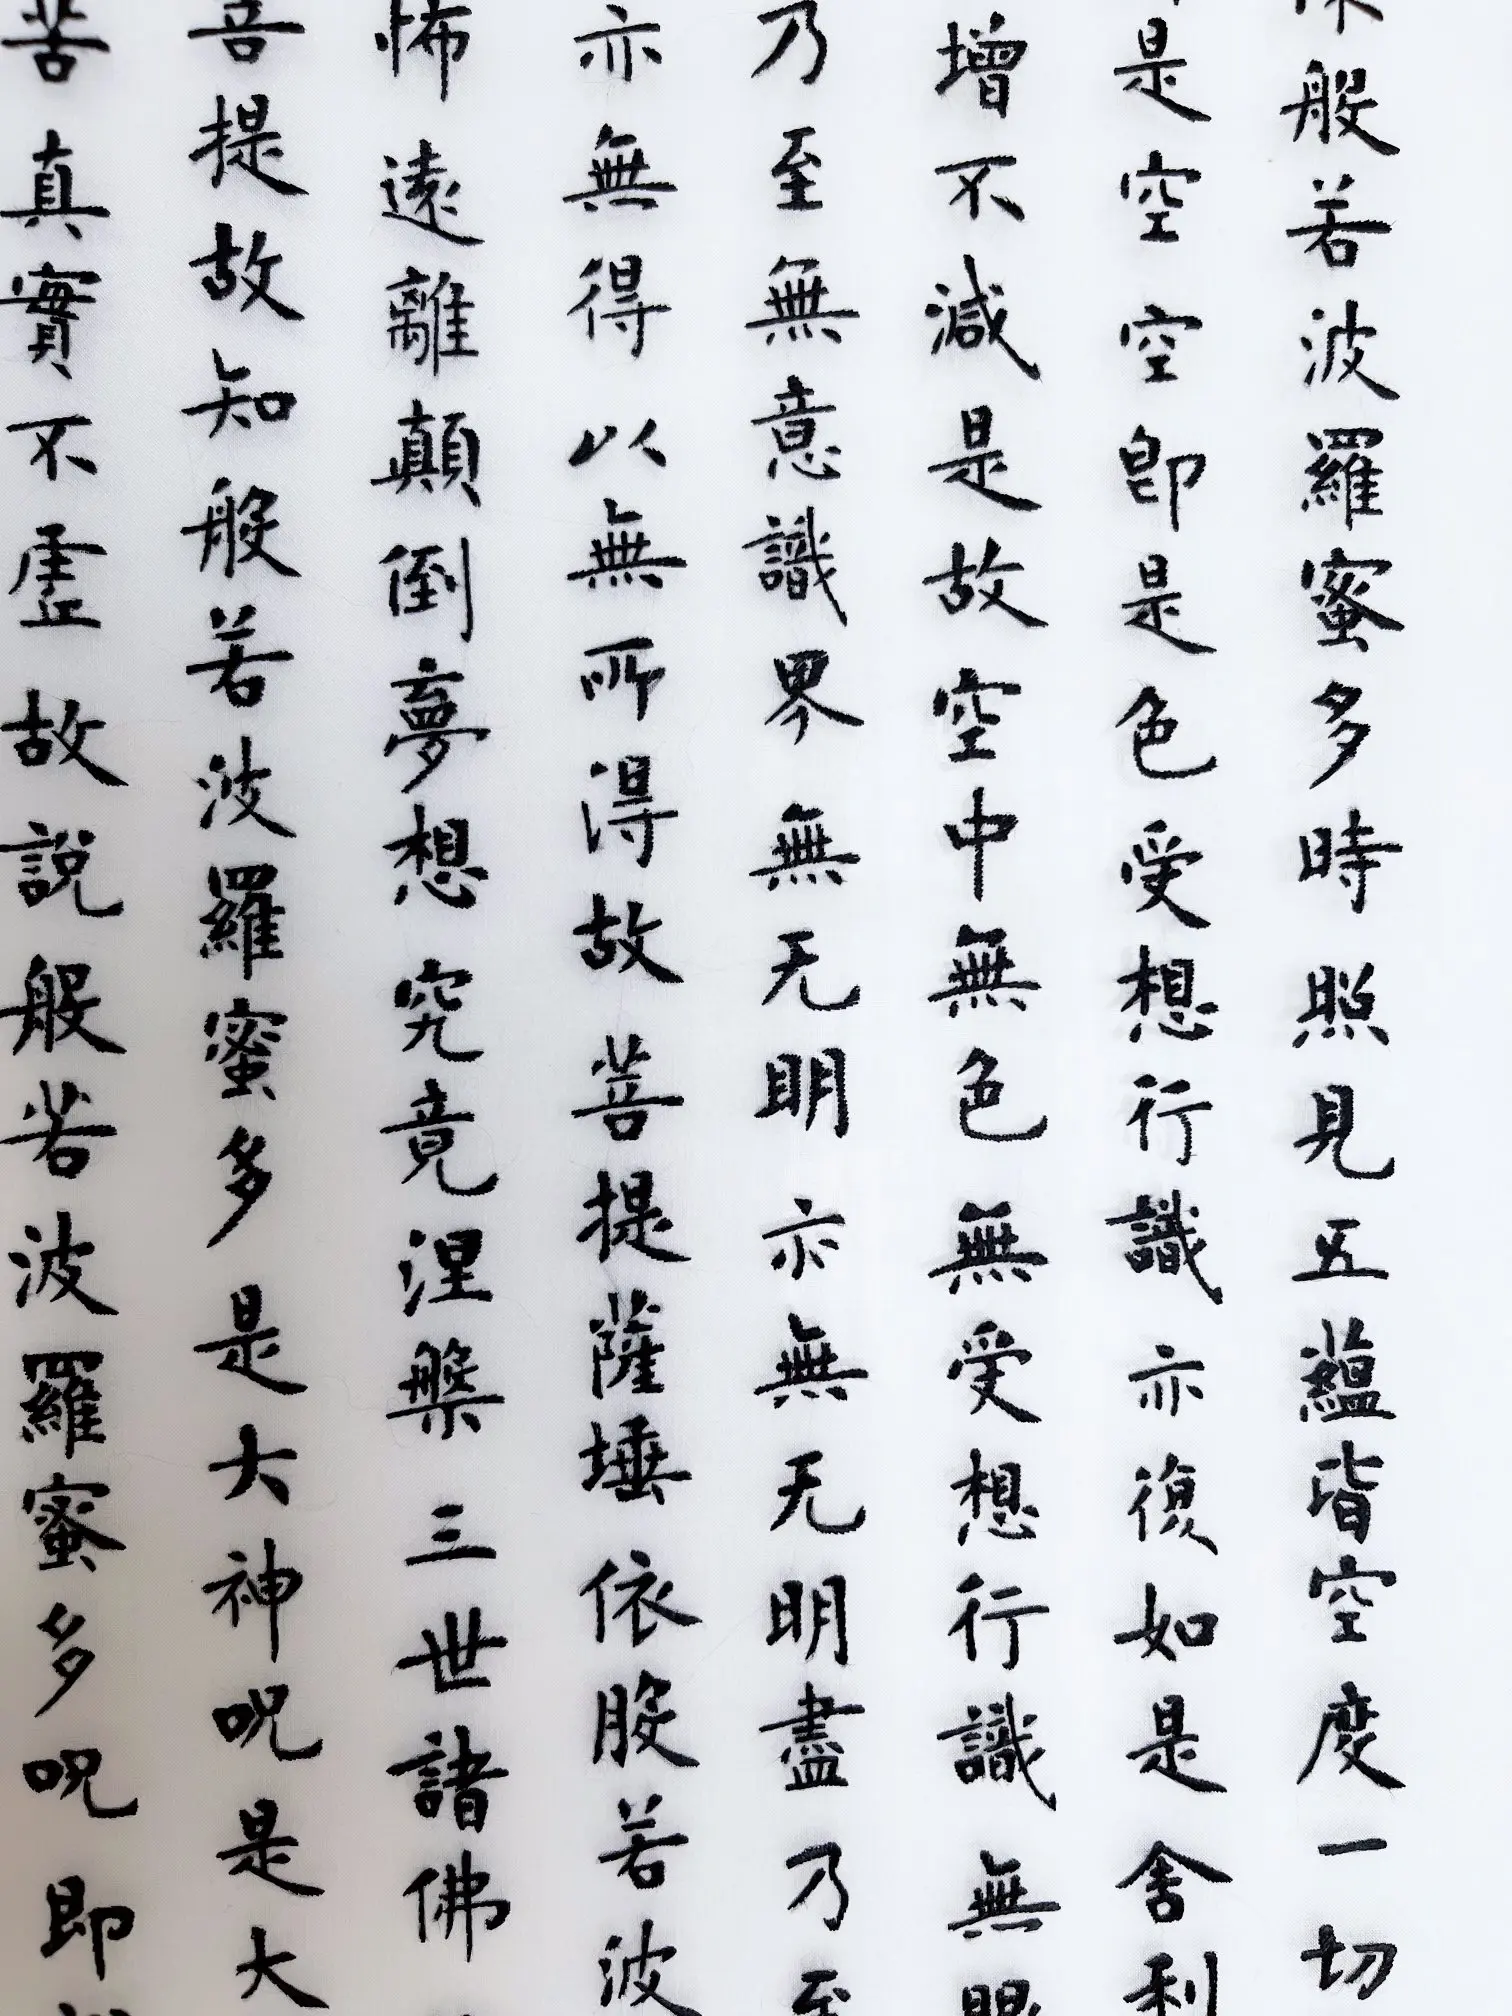 深般若波羅蜜多時照見五蘊皆空度一切
是空空即是色受想行識亦復如是舍利
增不減是故空中無色無受想行識無眼
乃至無意識界無无明亦無无明盡乃至
亦無得以無所得故菩提薩埵依般若波
怖遠離顛倒夢想究竟涅槃三世諸佛
菩提故知般若波羅蜜多是大神呪是大
苦真實不虛故說般若波羅蜜多呪即說